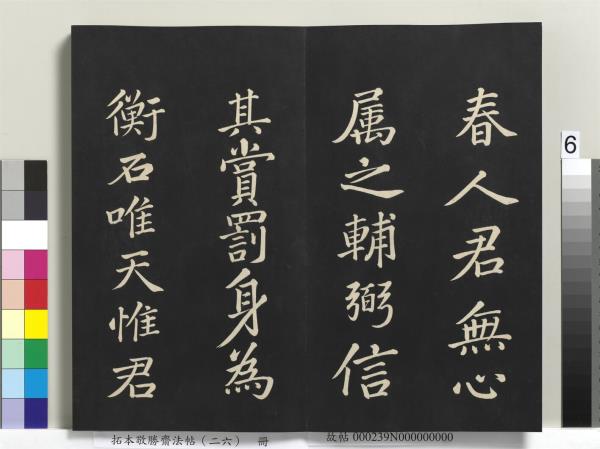 春人君無心
属之輔弼信
其賞罰身為
衡石唯天惟君
6
拓本敬勝齋法帖(二六) 冊
故帖 000239N000000000